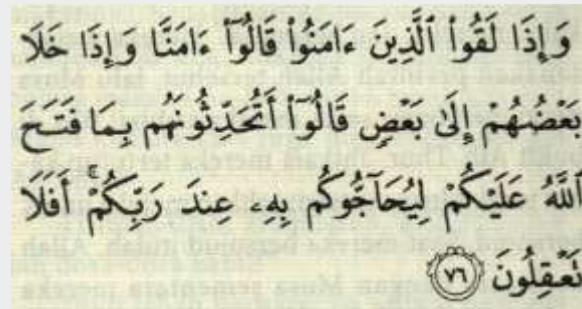 وَإِذَا لَقُوا۟ ٱلَّذِينَ ءَامَنُوا۟ قَالُوٓا۟ ءَامَنَّا وَإِذَا خَلَا
بَعْضُهُمْ إِلَىٰ بَعْضٍ قَالُوٓا۟ أَتُحَدِّثُونَهُم بِمَا فَتَحَ
ٱللَّهُ عَلَيْكُمْ لِيُحَآجُّوكُم بِهِۦ عِندَ رَبِّكُمْ ۚ أَفَلَا
تَعْقِلُونَ ٧٦